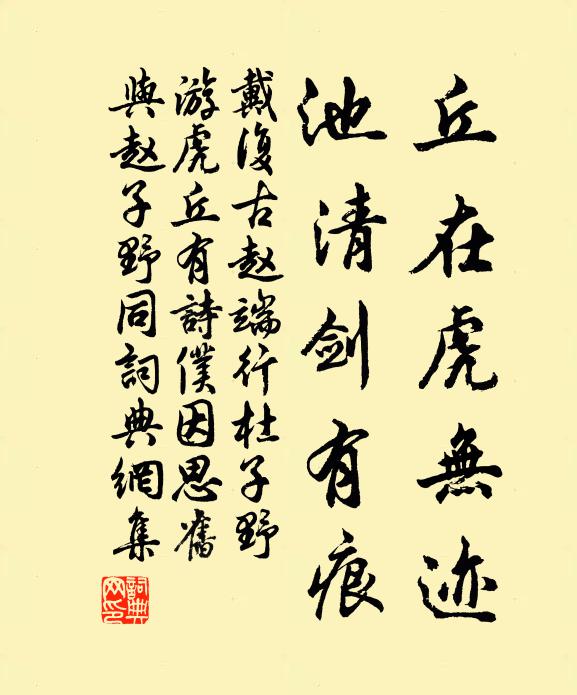 丘在虎無迹
池清劍有痕
戴復古赵端行杜子野
游虎丘有詩僕因思舊
與赵子野同詞典網集